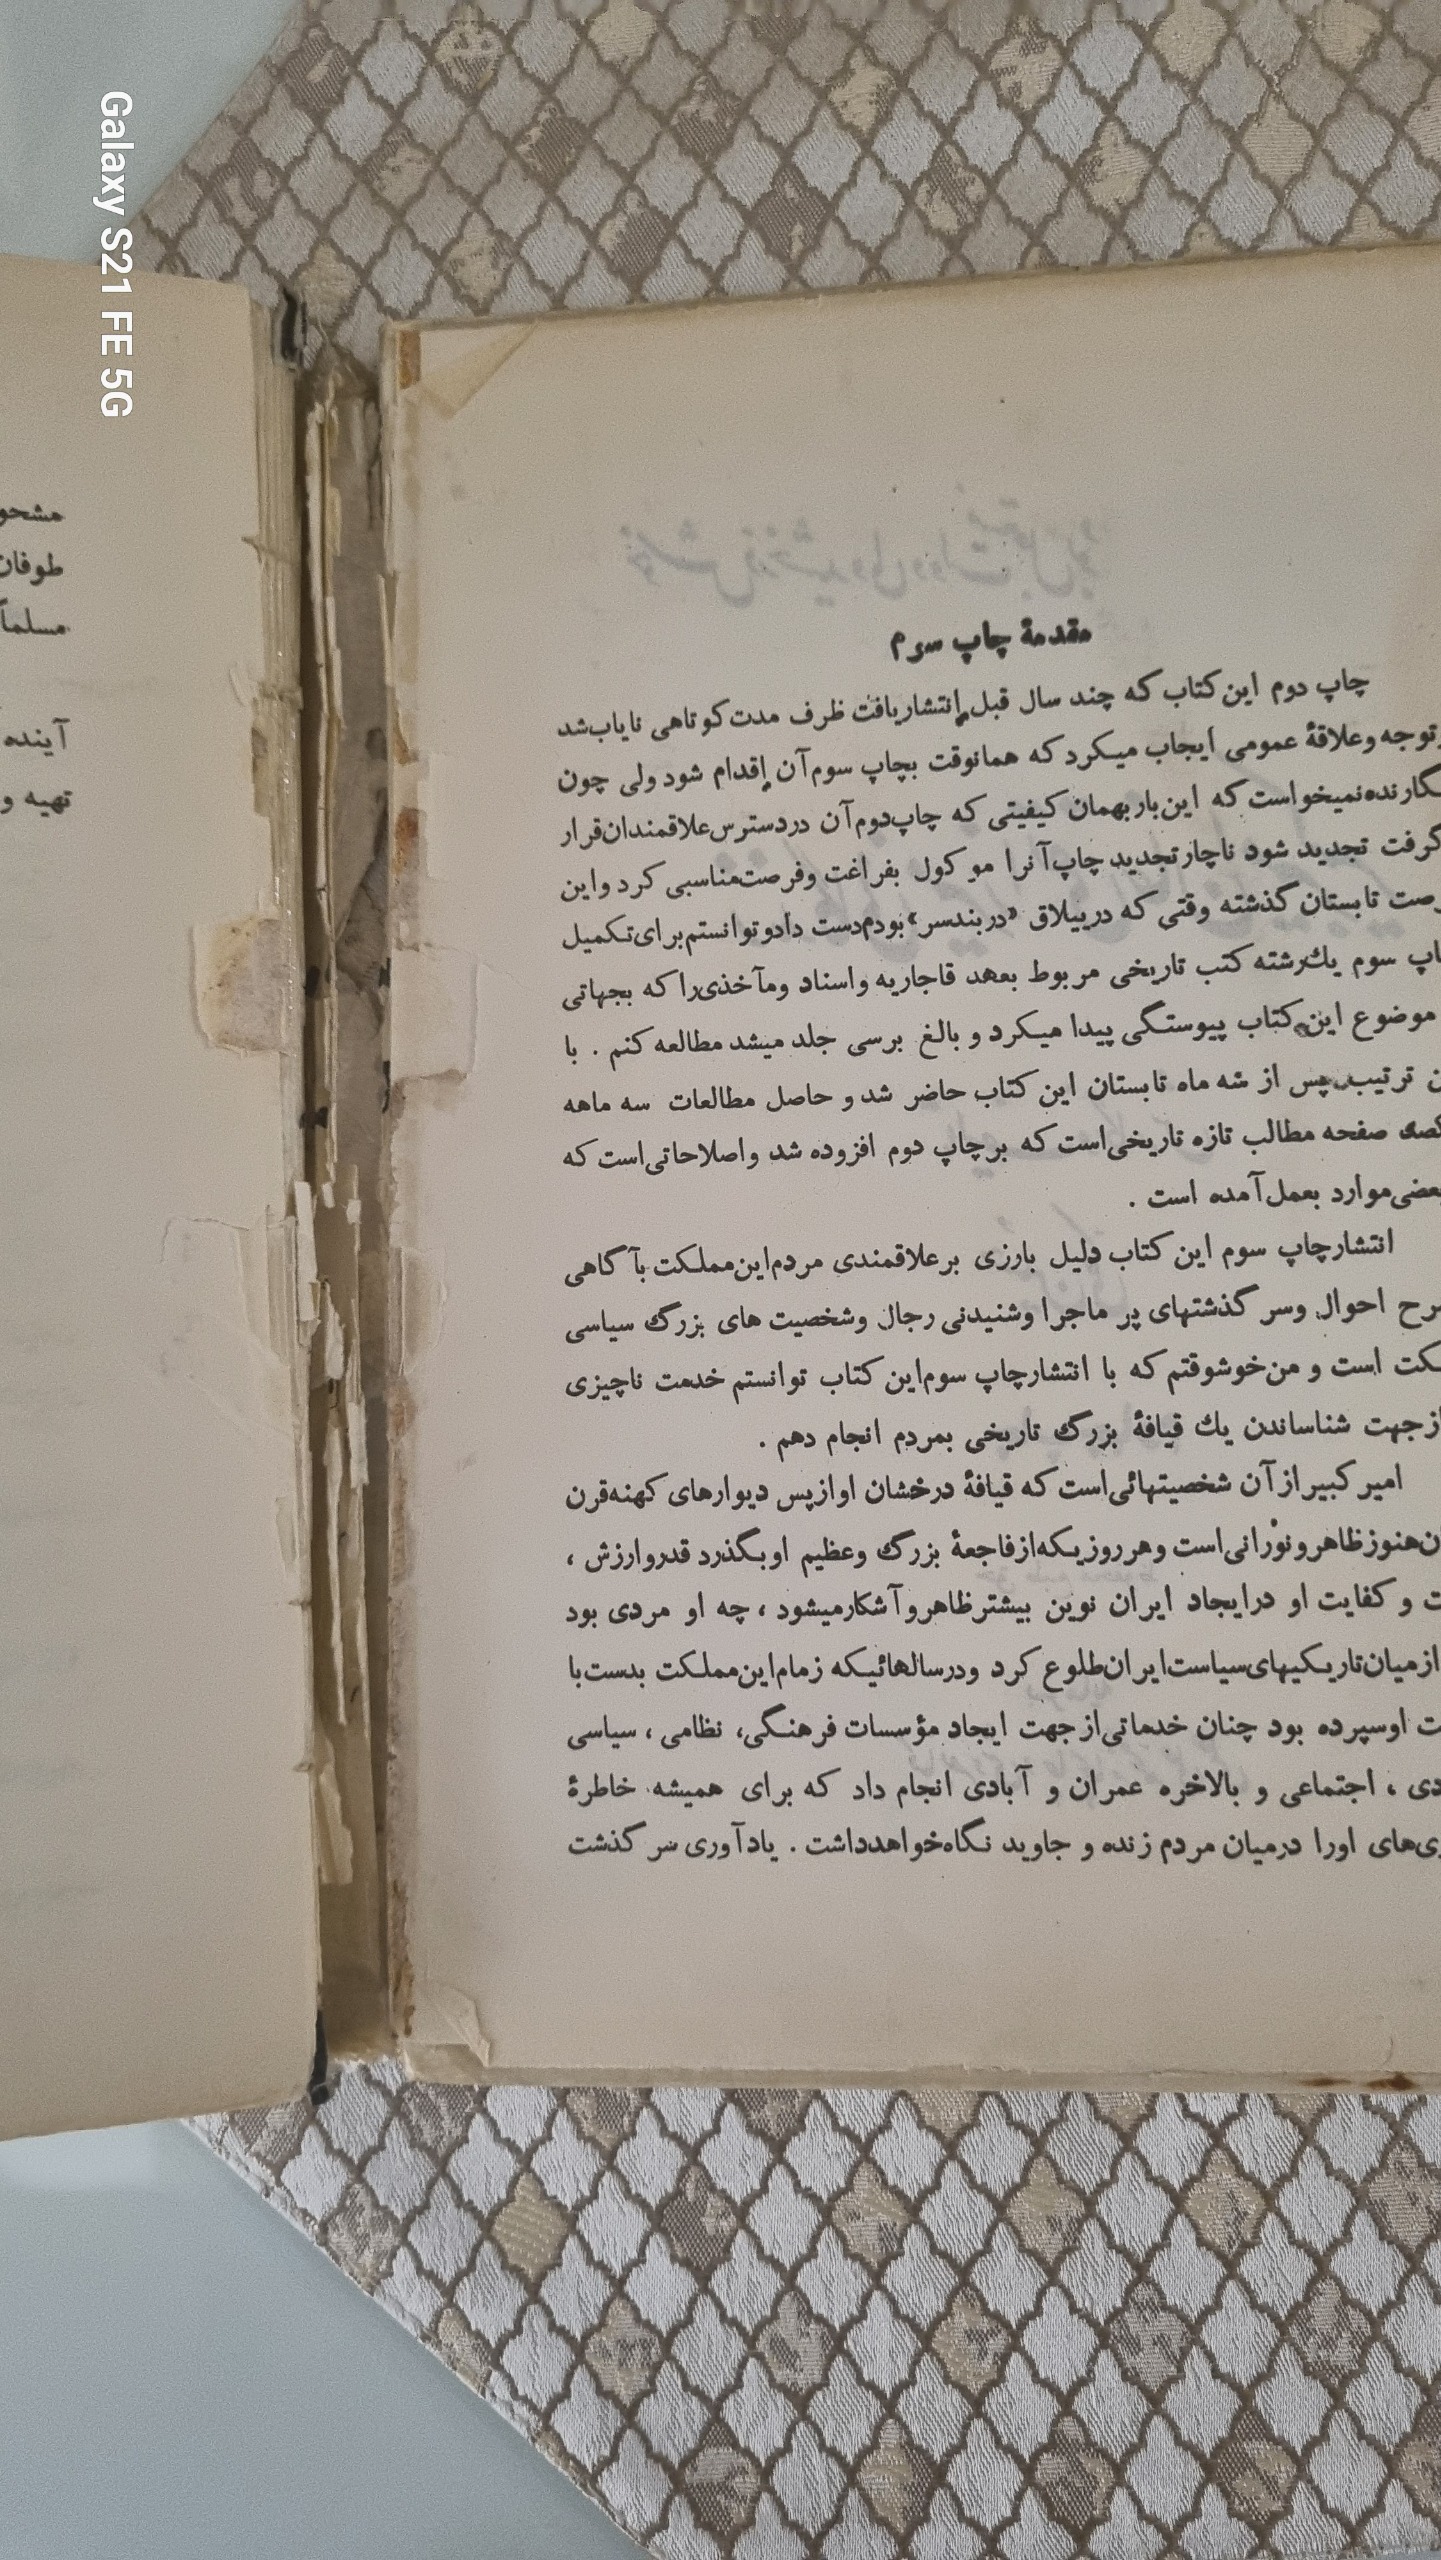 مقدمهٔ چاپ سوم
چاپ دوم این کتاب که چند سال قبل انتشار یافت ظرف مدت کوتاهی نایاب شد
توجه و علاقهٔ عمومی ایجاب میکرد که همانوقت بچاپ سوم آن اقدام شود ولی چون
نمیخواست که این بار بهمان کیفیتی که چاپ دوم آن در دسترس علاقمندان قرار
گرفت تجدید شود ناچار تجدید چاپ آنرا موکول بفراغت و فرصت مناسبی کرد و این
تابستان گذشته وقتی که در ییلاق «دربندسر» بودم دست داد و توانستم برای تکمیل
سوم یك رشته کتب تاریخی مربوط بعهد قاجاریه و اسناد و مآخذی را که بجهاتی
موضوع این کتاب پیوستگی پیدا میکرد و بالغ برسی جلد میشد مطالعه کنم . با
ترتیب پس از سه ماه تابستان این کتاب حاضر شد و حاصل مطالعات سه ماهه
صفحه مطالب تازه تاریخی است که بر چاپ دوم افزوده شد و اصلاحاتی است که
موارد بعمل آمده است .
انتشار چاپ سوم این کتاب دلیل بارزی بر علاقمندی مردم این مملکت بآگاهی
احوال و سر گذشتهای پر ماجرا و شنیدنی رجال و شخصیت های بزرگ سیاسی
است و من خوشوقتم که با انتشار چاپ سوم این کتاب توانستم خدمت ناچیزی
از جهت شناساندن یك قیافهٔ بزرگ تاریخی بمردم انجام دهم .
امیر کبیر از آن شخصیتهائی است که قیافهٔ درخشان او از پس دیوارهای کهنه قرن
هنوز ظاهر و نورانی است و هر روزیکه از فاجعهٔ بزرگ و عظیم او بگذرد قدر و ارزش ،
و کفایت او در ایجاد ایران نوین بیشتر ظاهر و آشکار میشود ، چه او مردی بود
از میان تاریکیهای سیاست ایران طلوع کرد و در سالهائیکه زمام این مملکت بدست با
او سپرده بود چنان خدماتی از جهت ایجاد مؤسسات فرهنگی، نظامی ، سیاسی
، اجتماعی و بالاخره عمران و آبادی انجام داد که برای همیشه خاطرهٔ
اورا درمیان مردم زنده و جاوید نگاه خواهد داشت . یادآوری سر گذشت
طوفان
آینده
تهیه و
Galaxy S21 FE 5G